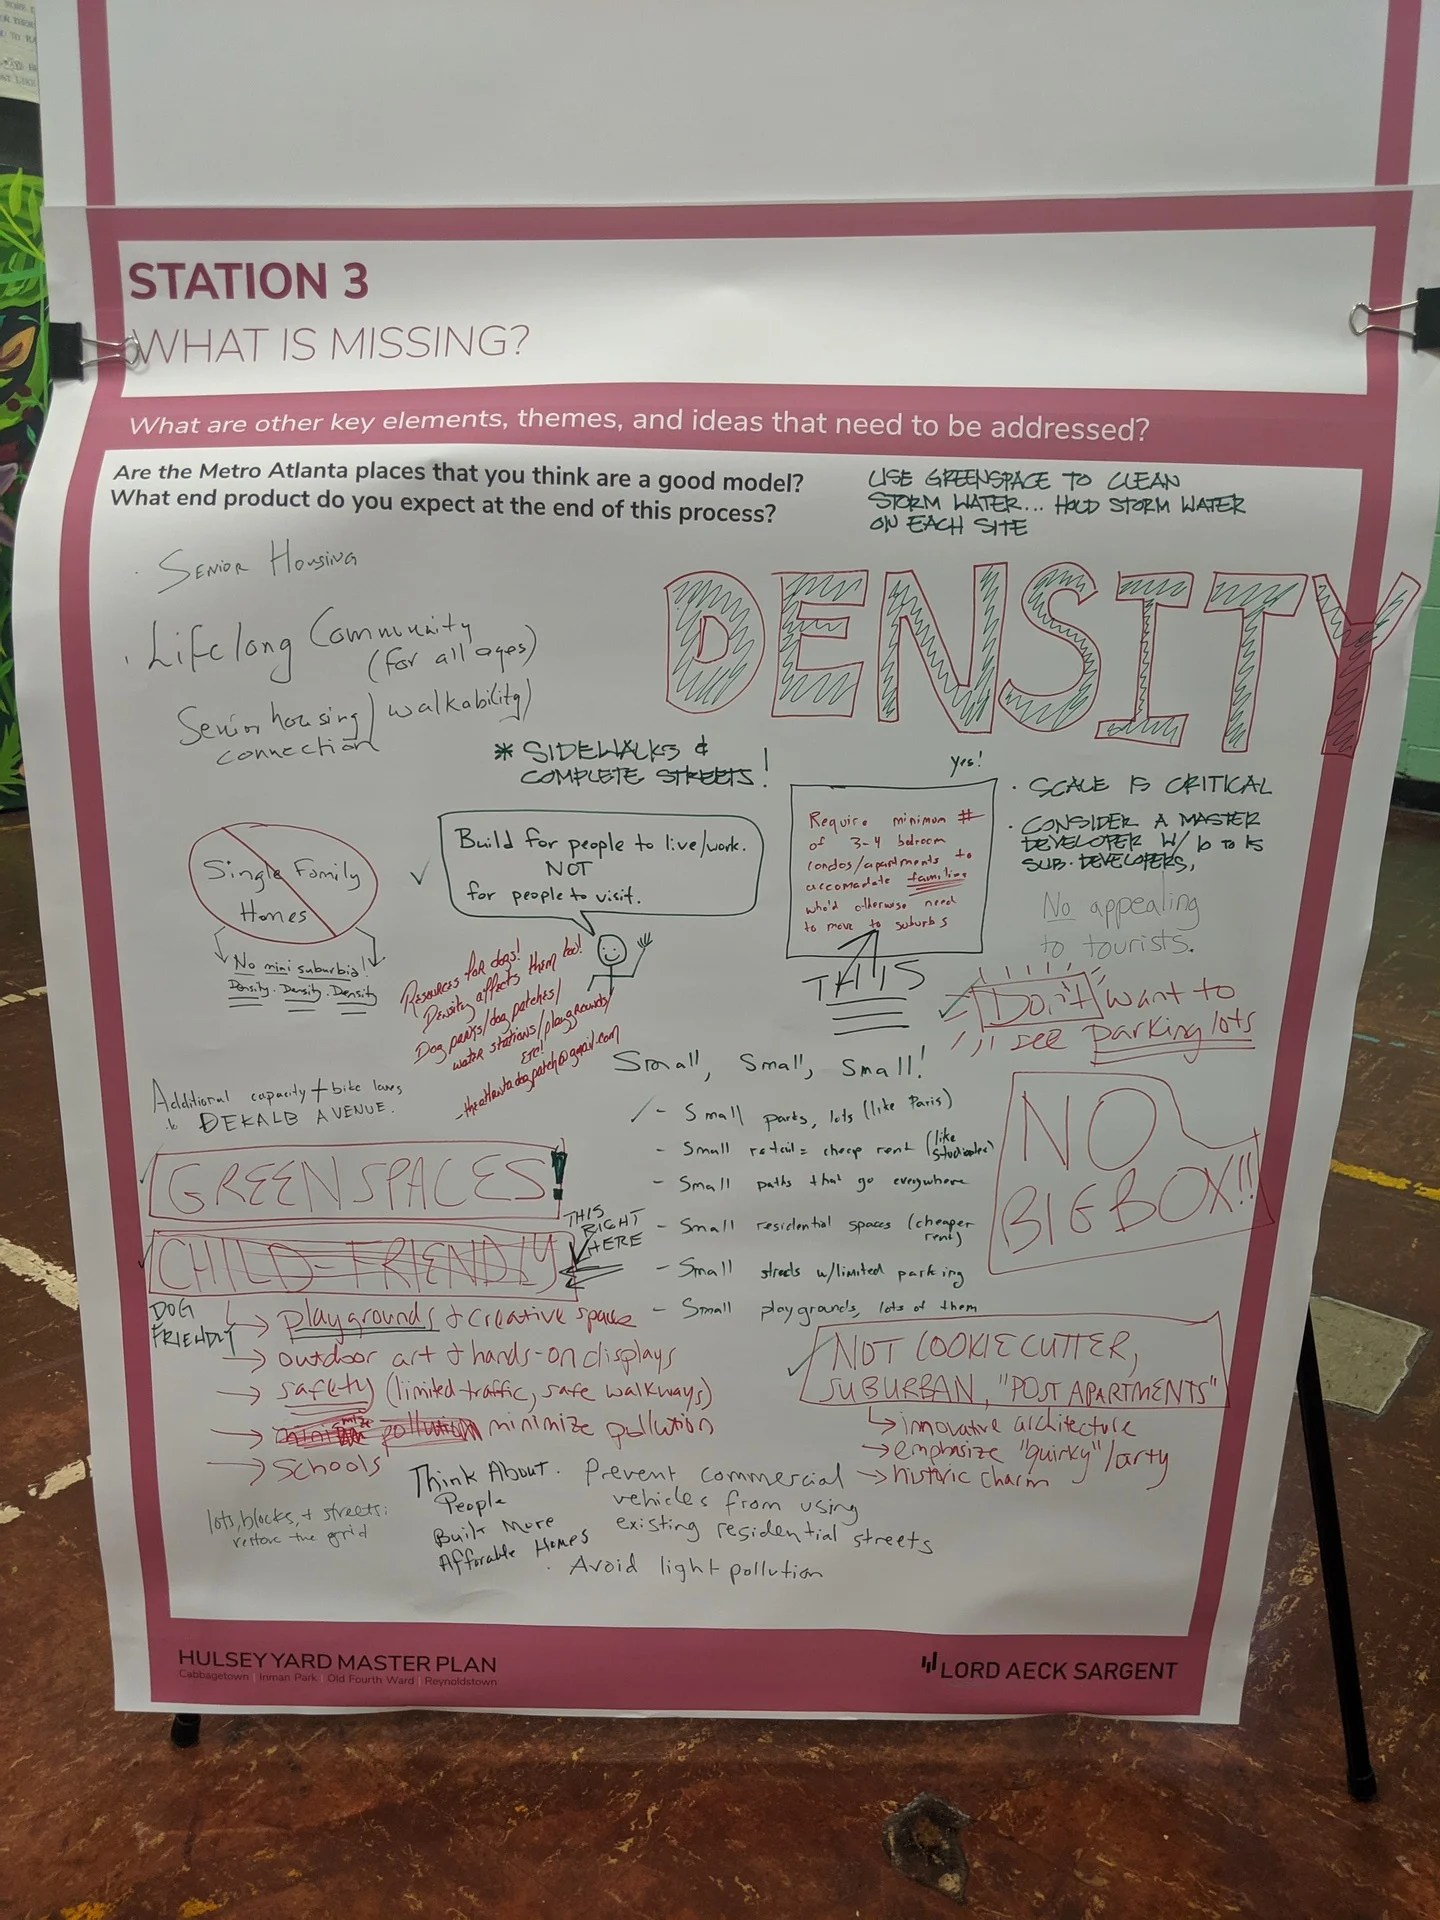 STATION 3
WHAT IS MISSING?
What are other key elements, themes, and ideas that need to be addressed?
Are the Metro Atlanta places that you think are a good model?
What end product do you expect at the end of this process?
USE GREENSPACE TO CLEAN
STORM WATER... HOLD STORM WATER
ON EACH SITE
· SENIOR HOUSING
· Lifelong Community
(for all ages)
Senior housing/walkability/
connection
DENSITY
* SIDEWALKS &
COMPLETE STREETS!
yes!
Require minimum #
of 3-4 bedroom
condos/apartments to
accomadate families
who'd otherwise need
to move to suburbs
THIS
· SCALE IS CRITICAL
· CONSIDER A MASTER
DEVELOPER W/ 10 to 15
SUB-DEVELOPERS,
No appealing
to tourists.
Don't want to
see parking lots
Single Family
Homes
No mini suburbia!
Density. Density. Density
Build for people to live/work.
NOT
for people to visit.
Resources for dogs!
Density affects them too!
Dog parks/dog patches/
water stations/playgrounds/
ETC!
-theatlantadogpatch@gmail.com
Additional capacity + bike lanes
DEKALB AVENUE.
Small, Small, Small!
- Small parks, lots (like Paris)
- Small retail = cheap rent (like
- Small paths that go everywhere
- Small residential spaces (cheaper
rent)
- Small streets w/limited parking
- Small playgrounds, lots of them
NO
BIG BOX!!
GREENSPACES!
CHILD-FRIENDLY
THIS
RIGHT
HERE
DOG
FRIENDLY
→ playgrounds + creative space
→ outdoor art + hands-on displays
→ safety (limited traffic, safe walkways)
→ minimize pollution
→ schools
NOT COOKIE CUTTER,
SUBURBAN, "POST APARTMENTS"
↳ innovative architecture
→ emphasize "quirky"/arty
→ historic charm
lots, blocks, + streets:
restore the grid
Think About.
People
Built More
Afforable Homes
Prevent commercial
vehicles from using
existing residential streets
· Avoid light pollution
HULSEY YARD MASTER PLAN
Cabbagetown | Inman Park | Old Fourth Ward | Reynoldstown
LORD AECK SARGENT